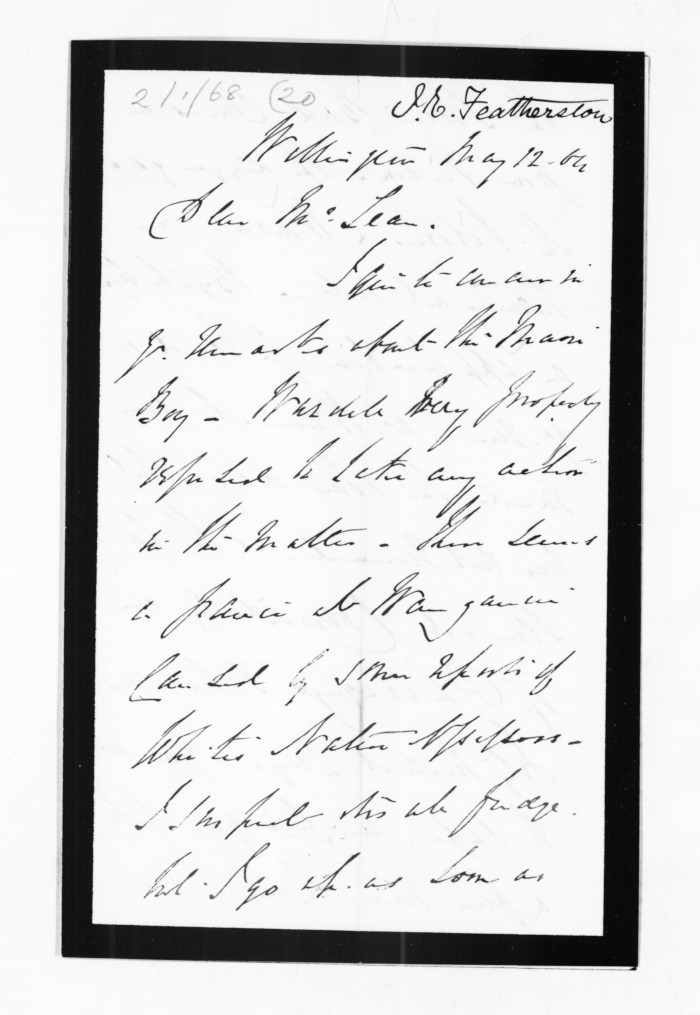 2/1/68 (20
I.E. Featherston
Wellington May 12. 64
Dear McLean.
I quite concur in
yr. remarks about the Maori
Boy - Wardell very properly
refused to take any action
in the matter - There seems
a panic at Wanganui
caused by some reports of
White's Native Assessors -
I suspect it is all fudge.
but I go up as soon as